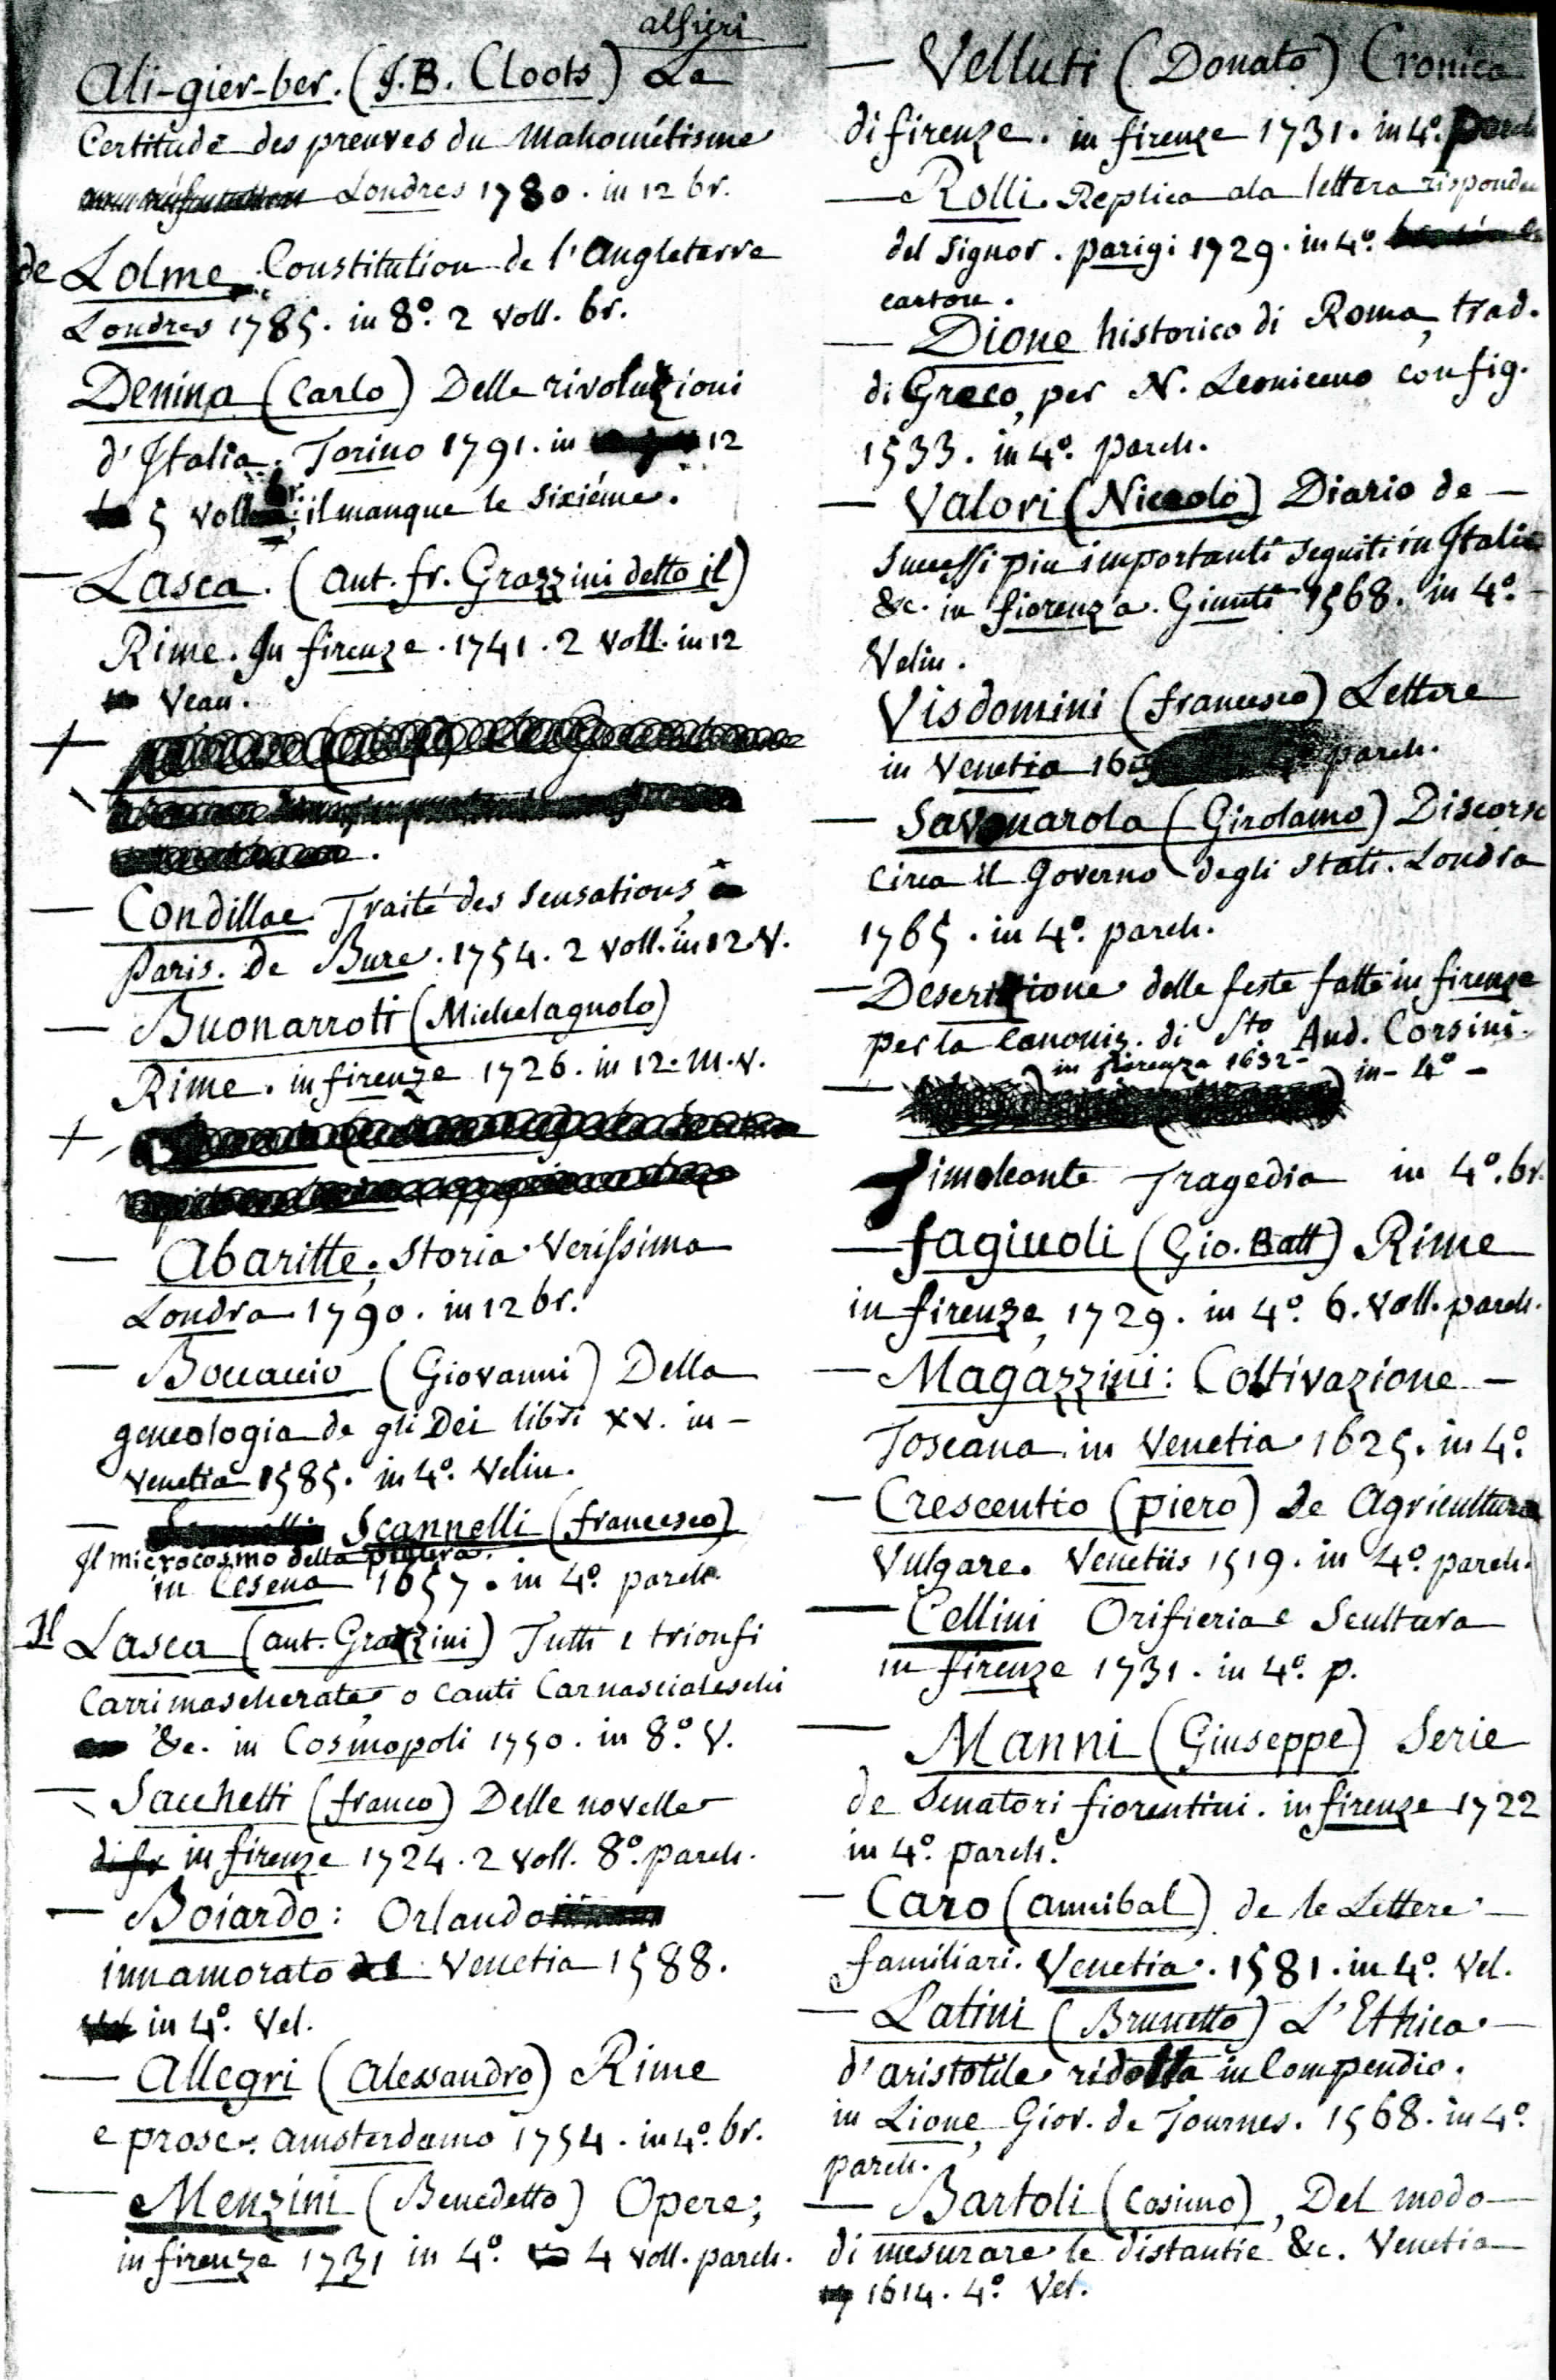 alfieri
Ali-gier-ber. (J.B. Cloots) La
Certitude des preuves du Mahométisme
Londres 1780. in 12 br.
de Lolme. Constitution de l'Angleterre
Londres 1785. in 8º. 2 voll. br.
Denina (Carlo) Delle rivoluzioni
d'Italia. Torino 1791. in 12
5 voll br. ; il manque le sixiéme.
— Lasca. (Ant. fr. Grazzini detto il)
Rime. In firenze. 1741. 2 voll. in 12
Veau.
— Condillac Traité des sensations,
Paris. de Bure. 1754. 2 voll. in 12. V.
— Buonarroti (Michelagnolo)
Rime. in firenze 1726. in 12. M.V.
— Abaritte; Storia Verissima
Londra 1790. in 12 br.
— Boccaccio (Giovanni) Della
geneologia de gli Dei libri XV. in —
Venetia 1585. in 4º. Velin.
— Scannelli (francesco)
Il microcosmo della pittura.
in Cesena 1657. in 4º. parch.
Il Lasca (Ant. Grazzini) Tutti e trionfi
Carri mascherate, o Canti Carnascialeschi
&c. in Cosmopoli 1750. in 8º. V.
— Sacchetti (franco) Delle novelle
in firenze 1724. 2 voll. 8º. parch.
— Boiardo: Orlando
innamorato Venetia 1588.
in 4º. Vel.
— Allegri (Alessandro) Rime
e prose. Amsterdamo 1754. in 4º. br.
— Menzini (Benedetto) Opere;
in firenze 1731 in 4º. 4 voll. parch.
— Velluti (Donato) Cronica
di firenze. in firenze 1731. in 4º. parch
— Rolli. Replica ala lettera risponde
del Signor. parigi 1729. in 4º.
carton.
— Dione historico di Roma, trad.
di Greco, per N. Leoniceno con fig.
1533. in 4º. parch.
— Valori (Niccolò) Diario de —
Successi piu importanti seguiti in Italia
&c. in fiorenza. Giunti 1568. in 4º. —
Velin.
Visdomini (francesco) Lettere
in Venetia 16 parch.
— Savonarola (Girolamo) Discorso
circa il Governo degli stati. Londra
1765. in 4º. parch.
— Descrizione delle feste fatte in firenze
per la Canoniz. di Sto And. Corsini.
in fiorenza 1632 — in — 4º —
Timoleonte Tragedia in 4º. br.
— fagiuoli (Gio. Batt) Rime
in firenze, 1729. in 4º. 6. voll. parch.
— Magazzini: Coltivazione —
Toscana. in Venetia 1625. in 4º.
— Crescentio (piero) de Agricultura
Vulgare. Venetiis 1519. in 4º. parch.
— Cellini Orificeria e Scultura
in firenze 1731. in 4º. p.
— Manni (Giuseppe) Serie
de Senatori fiorentini. in firenze 1722
in 4º. parch.
— Caro (Annibal) de le Lettere —
familiari. Venetia. 1581. in 4º. Vel.
— Latini (Brunetto) L'Ethica —
d'aristotile ridotta in Compendio.
in Lione, Giov. de Tournes. 1568. in 4º
parch.
— Bartoli (Cosimo), Del modo —
di mesurare le distantie &c. Venetia —
1614. 4º. Vel.